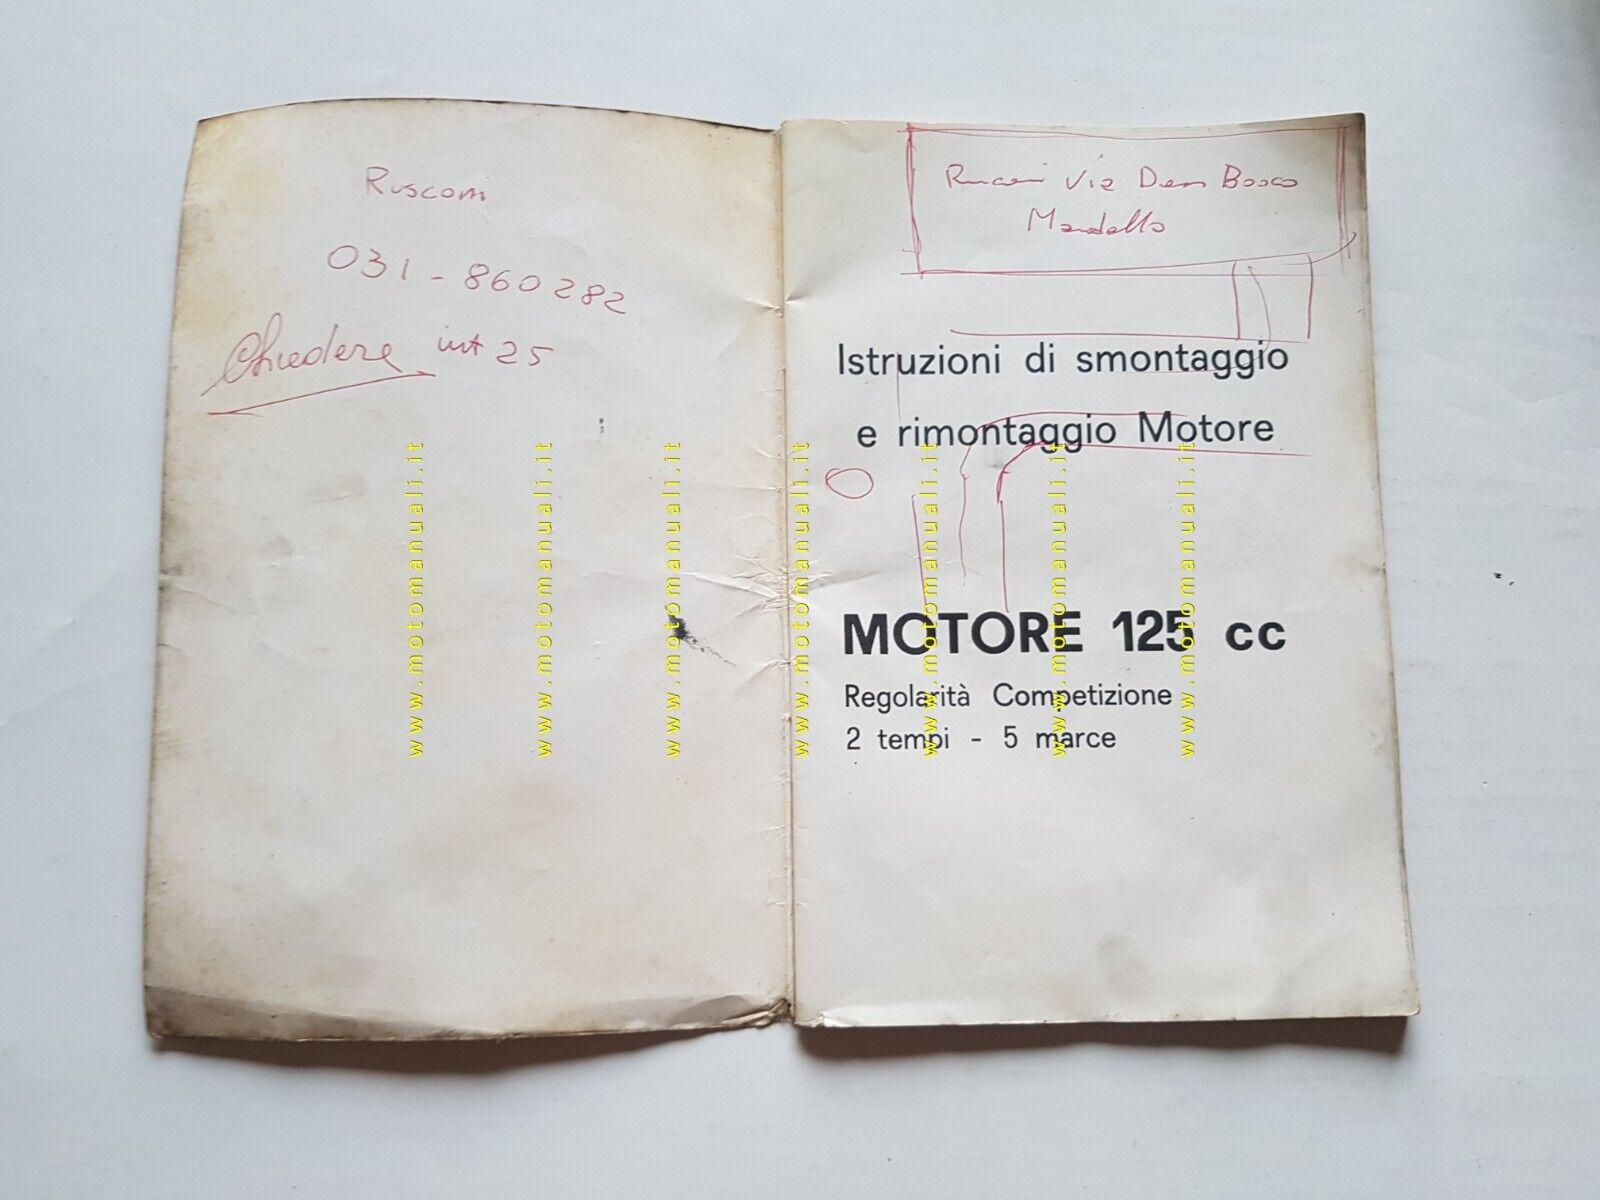 Rusconi
031-860282
Chiedere int 25
Via Don Bosco
Mandello
Istruzioni di smontaggio
e rimontaggio Motore
MOTORE 125 cc
Regolarità Competizione
2 tempi - 5 marce
www.motomanuali.it
www.motomanuali.it
www.motomanuali.it
www.motomanuali.it
www.motomanuali.it
www.motomanuali.it
www.motomanuali.it